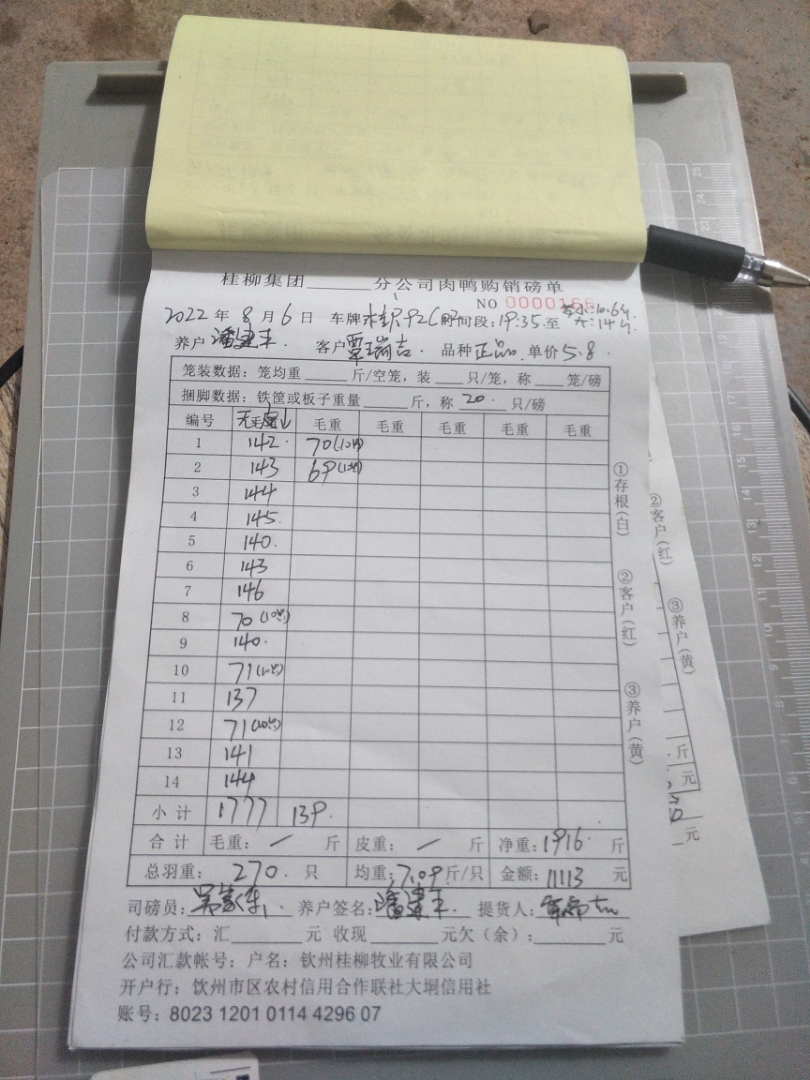 桂柳集团______分公司肉鸭购销磅单
NO 0000166
2022 年 8 月 6 日 车牌 时间段: 19:35 至
养户 潘建丰 客户 覃瑞吉 品种 正品 单价 5.8
笼装数据: 笼均重______斤/空笼, 装____只/笼, 称____笼/磅
捆脚数据: 铁筐或板子重量______斤, 称 20 只/磅
编号 毛重 毛重 毛重 毛重 毛重
1 142 70(10只)
2 143 69(10只)
3 144
4 145
5 140
6 143
7 146
8 70(10只)
9 140
10 71(10只)
11 137
12 71(10只)
13 141
14 144
小计 1777 139
合计 毛重: / 斤 皮重: / 斤 净重: 1916 斤
总羽重: 270 只 均重: 7.09 斤/只 金额: 11113 元
司磅员: 养户签名: 潘建丰 提货人:
付款方式: 汇______元 收现______元欠(余):______元
公司汇款帐号: 户名: 钦州桂柳牧业有限公司
开户行: 钦州市区农村信用合作联社大垌信用社
账号: 8023 1201 0114 4296 07
①存根(白)
②客户(红)
③养户(黄)
②客户(红)
③养户(黄)
斤
元
元